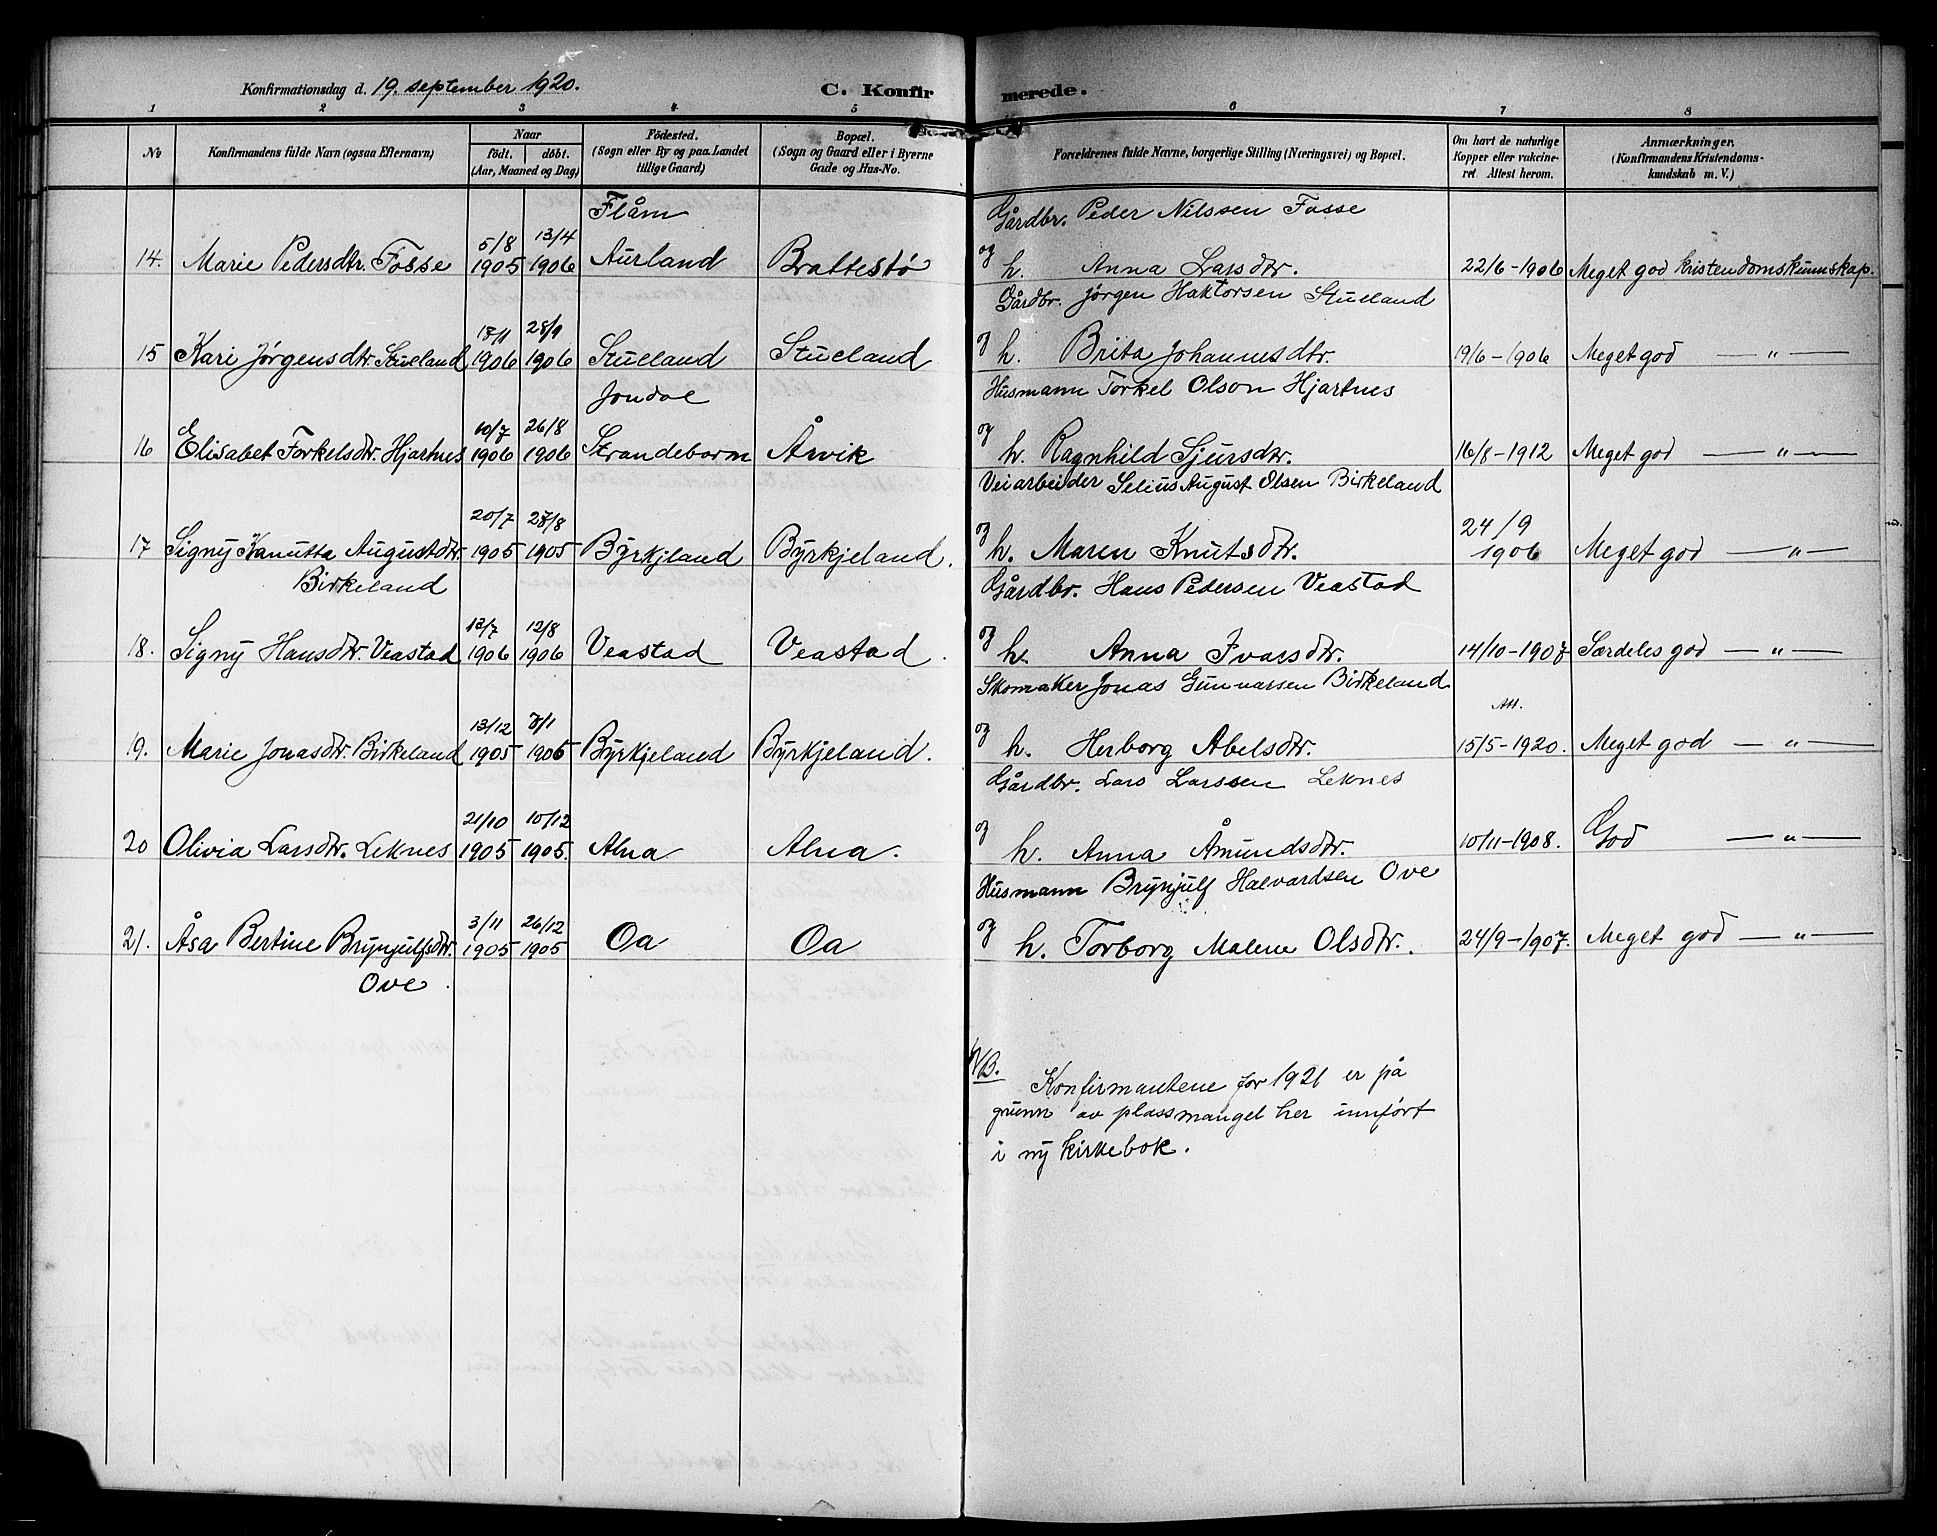 Konfirmationsdag d. 19. september 1920.
C. Konfirmerede.
1 2 3 4 5 6 7 8
No
Konfirmandens fulde Navn (ogsaa Efternavn)
Naar
födt. döbt.
(Aar, Maaned og Dag)
Födested.
(Sogn eller By og paa Landet
tillige Gaard)
Bopæl.
(Sogn og Gaard eller i Byerne
Gade og Hus-No.
Forældrenes fulde Navne, borgerlige Stilling (Næringsvei) og Bopæl.
Om havt de naturlige
Kopper eller vakcine-
ret Attest herom.
Anmærkninger.
(Konfirmandens Kristendoms-
kundskab m. V.)
Flåm Gårdbr. Peder Nilssen Fosse
5/8 13/4 og
14. Marie Pedersdtr. Fosse 1905 1906 Aurland Brattestø h. Anna Larsdtr. 22/6-1906 Meget god kristendomskunnskap.
Gårdbr. Jørgen Haktorsen Stueland
18/1 28/9 og
15 Kari Jørgensdtr. Stueland 1906 1906 Stueland Stueland h. Brita Johannesdtr. 19/6-1906 Meget god — " —
Jondal Husmann Torkel Olson Hjartnes
10/7 26/8 og
16 Elisabet Torkelsdtr. Hjartnes 1906 1906 Strandebarm Årvik h. Ragnhild Sjursdtr. 16/8-1912 Meget god — " —
Veiarbeider Selius August Olsen Birkeland
20/7 27/8 og 24/9
17 Signy Kanutta Augustdtr. 1905 1905 Byrkjland Byrkjeland. h. Maren Knutsdtr. 1906 Meget god — " —
Birkeland Gårdbr. Hans Pedersen Veastad
12/7 12/8 og
18. Signy Hansdtr. Veastad 1906 1906 Veastad Veastad. h. Anna Ivarsdtr. 14/10-1907 Særdeles god — " —
Skomaker Jonas Gunnarsen Birkeland
13/12 og Att.
19. Marie Jonasdtr. Birkeland 1905 Byrkjeland Byrkjeland. h. Herborg Abelsdtr. 15/5-1920. Meget god — " —
Gårdbr. Lars Larssen Leknes
21/10 10/12 og
20 Olivia Larsdtr. Leknes 1905 1905. Alna Alna. h. Anna Åmundsdtr. 10/11-1908. God — " —
Husmann Brynjulf Halvardsen Ove
3/11 26/12 og
21. Åsa Bertine Brynjulfsdtr. 1905 1905 Oa Oa h. Torborg Malene Olsdtr. 24/9-1907. Meget god — " —
Ove
NB.
Konfirmantene for 1921 er på
grunn av plassmangel her innført
i ny kirkebok.